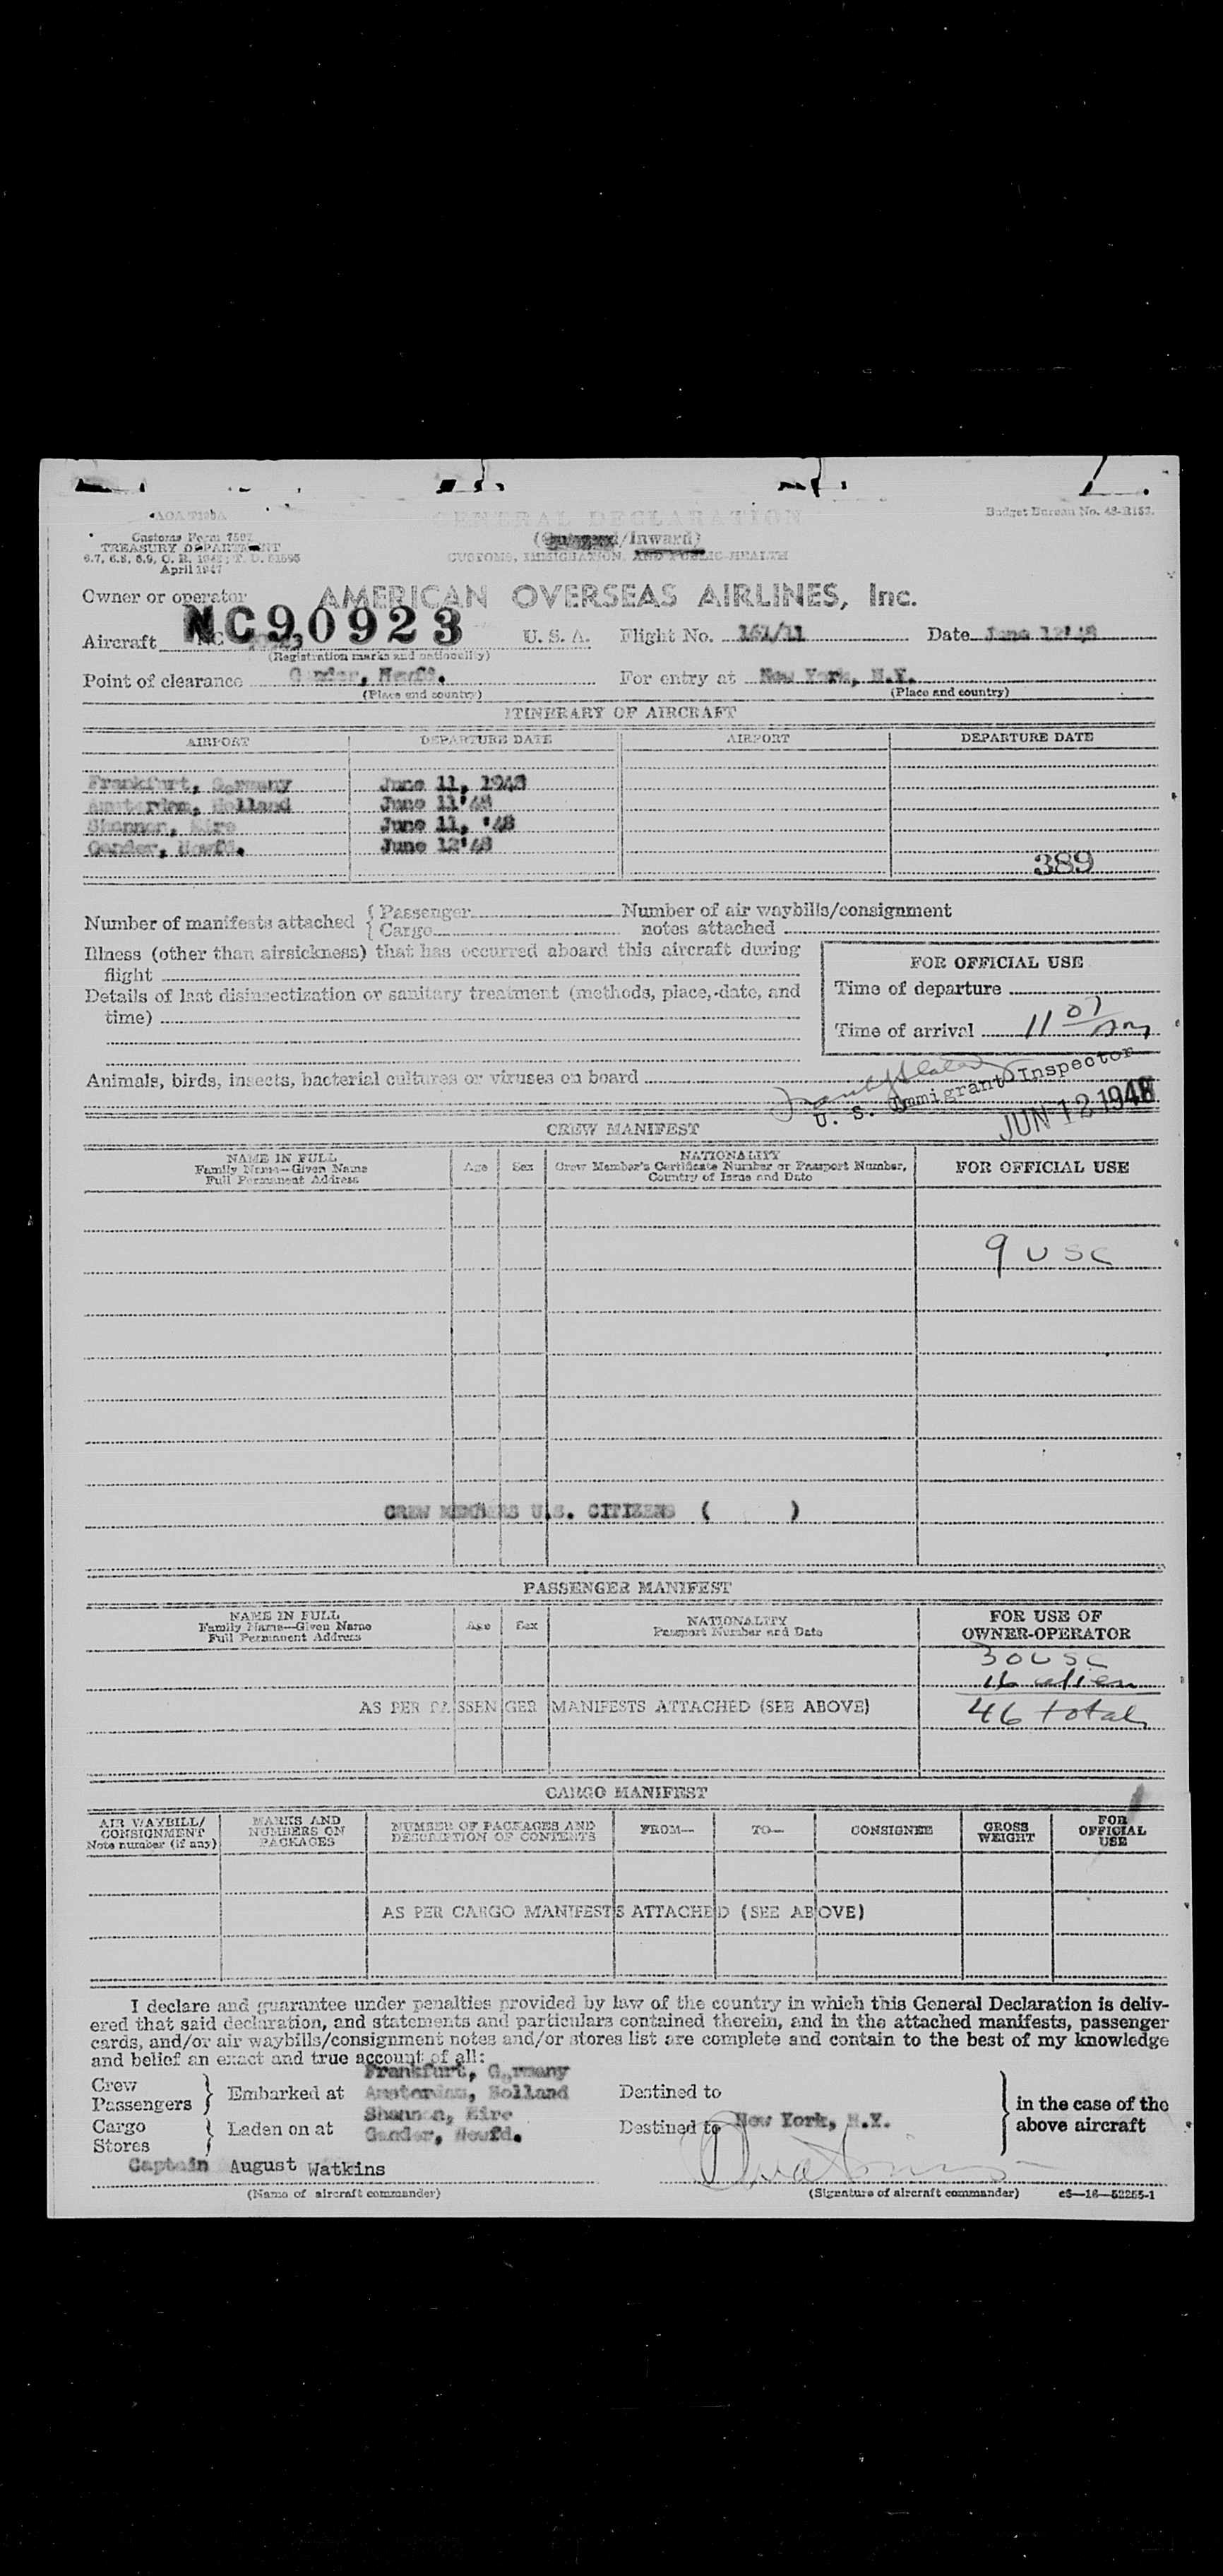 GENERAL DECLARATION
Budget Bureau No. 48-R153.
Customs Form 7507
(Outward/Inward)
TREASURY DEPARTMENT
CUSTOMS, IMMIGRATION, AND PUBLIC HEALTH
April 1947
Owner or operator AMERICAN OVERSEAS AIRLINES, Inc.
Aircraft NC90923 U. S. A. Flight No. 161/11 Date June 12'48
(Registration marks and nationality)
Point of clearance Gander, Newfd. For entry at New York, N.Y.
(Place and country) (Place and country)
ITINERARY OF AIRCRAFT
AIRPORT DEPARTURE DATE AIRPORT DEPARTURE DATE
Frankfurt, Germany June 11, 1948
Amsterdam, Holland June 11'48
Shannon, Eire June 11, '48
Gander, Newfd. June 12'48
389
Number of manifests attached { Passenger Number of air waybills/consignment
{ Cargo notes attached
Illness (other than airsickness) that has occurred aboard this aircraft during
flight
FOR OFFICIAL USE
Details of last disinsectization or sanitary treatment (methods, place, date, and
time)
Time of departure
Time of arrival 11 07 am
Animals, birds, insects, bacterial cultures or viruses on board
U. S. Immigrant Inspector
JUN 12 1948
CREW MANIFEST
NAME IN FULL
Family Name—Given Name
Full Permanent Address
Age Sex
NATIONALITY
Crew Member's Certificate Number or Passport Number,
Country of Issue and Date
FOR OFFICIAL USE
9 USC
CREW MEMBERS U.S. CITIZENS ( )
PASSENGER MANIFEST
NAME IN FULL
Family Name—Given Name
Full Permanent Address
Age Sex
NATIONALITY
Passport Number and Date
FOR USE OF
OWNER-OPERATOR
30 USC
16 alien
AS PER PASSENGER MANIFESTS ATTACHED (SEE ABOVE)
46 total
CARGO MANIFEST
AIR WAYBILL/
CONSIGNMENT
Note number (if any)
MARKS AND
NUMBERS ON
PACKAGES
NUMBER OF PACKAGES AND
DESCRIPTION OF CONTENTS
FROM—
TO—
CONSIGNEE
GROSS
WEIGHT
FOR
OFFICIAL
USE
AS PER CARGO MANIFESTS ATTACHED (SEE ABOVE)
I declare and guarantee under penalties provided by law of the country in which this General Declaration is deliv-
ered that said declaration, and statements and particulars contained therein, and in the attached manifests, passenger
cards, and/or air waybills/consignment notes and/or stores list are complete and contain to the best of my knowledge
and belief an exact and true account of all:
Crew
Passengers } Embarked at
Cargo
Stores } Laden on at
Frankfurt, Germany
Amsterdam, Holland
Shannon, Eire
Gander, Newfd.
Destined to
Destined to New York, N.Y.
} in the case of the
above aircraft
Captain August Watkins
(Name of aircraft commander) (Signature of aircraft commander) c5—16—52255-1